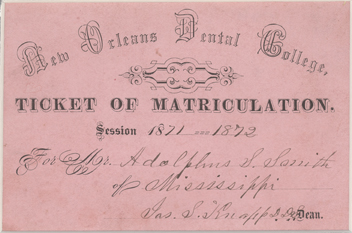 New Orleans Dental College,
TICKET OF MATRICULATION.
Session 1871 and 1872
For Mr. Adolphus S. Smith
of Mississippi
Jas. S. Knapp D.D.S. Dean.